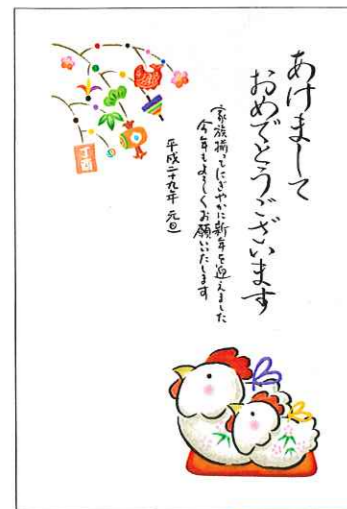 あけまして
おめでとうございます
家族揃ってにぎやかに新年を迎えました
今年もよろしくお願いいたします
平成二十九年 元旦
丁酉